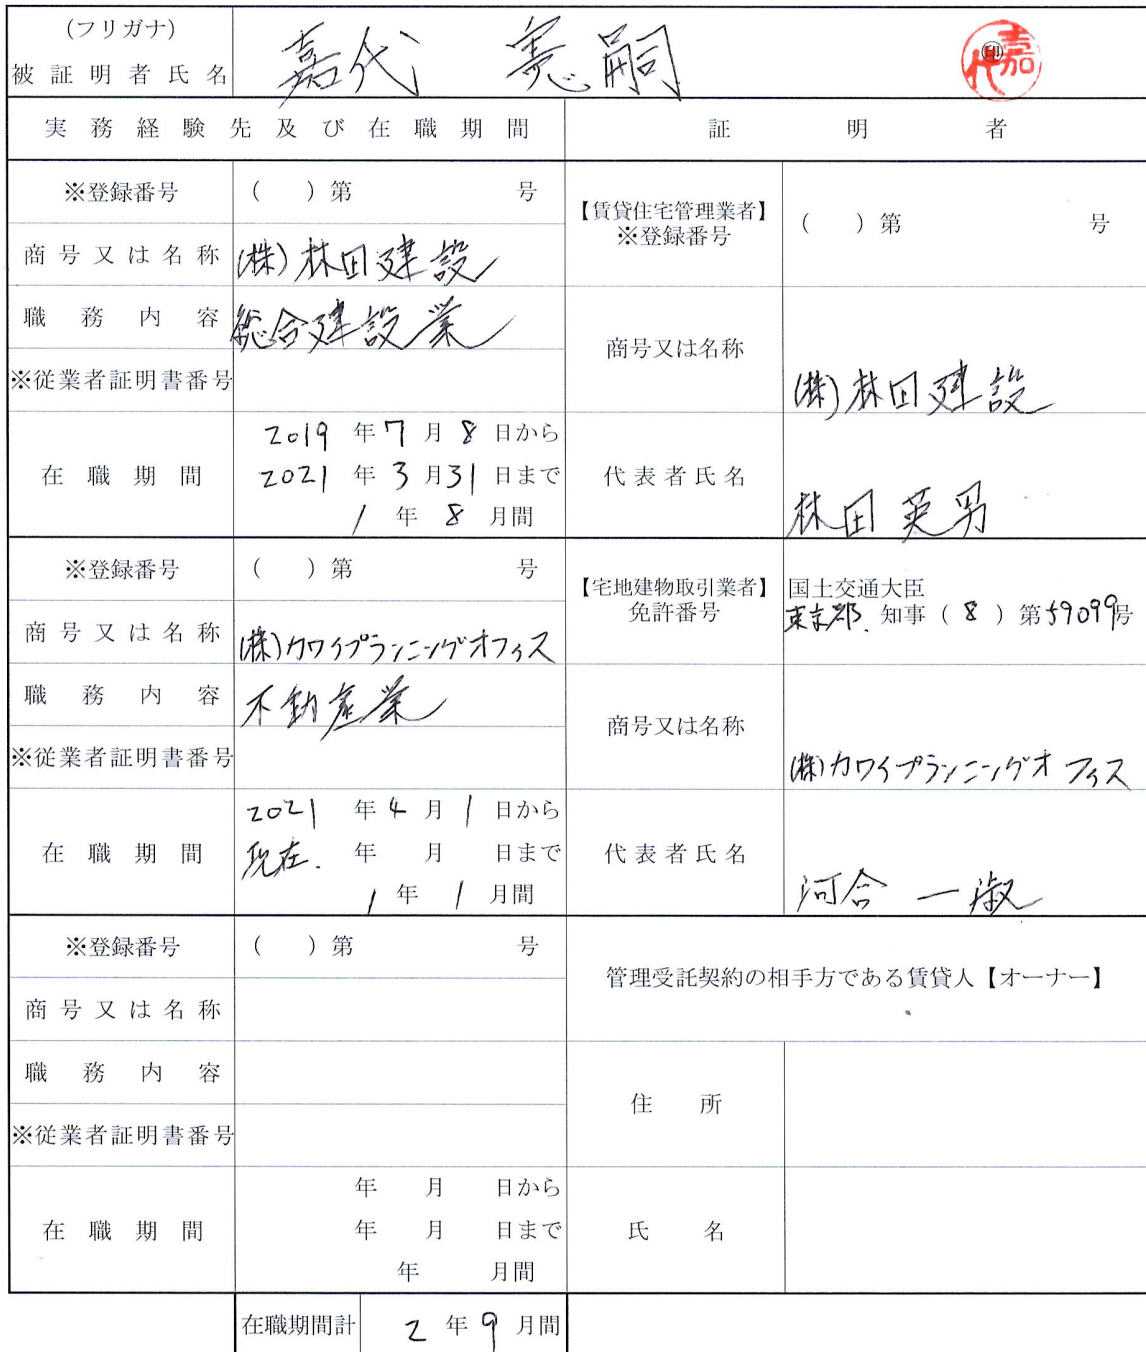 (フリガナ)
被証明者氏名 嘉代 憲嗣 ㊞ 嘉代
実務経験先及び在職期間 証明者
※登録番号 ( )第 号
【賃貸住宅管理業者】
※登録番号 ( )第 号
商号又は名称 (株)林田建設
職務内容 総合建設業
※従業者証明書番号
商号又は名称 (株)林田建設
在職期間
2019年7月8日から
2021年3月31日まで
1年8月間
代表者氏名 林田英男
※登録番号 ( )第 号
【宅地建物取引業者】
免許番号
国土交通大臣
東京都 知事(8)第59099号
商号又は名称 (株)カワイプランニングオフィス
職務内容 不動産業
※従業者証明書番号
商号又は名称 (株)カワイプランニングオフィス
在職期間
2021年4月1日から
現在. 年 月 日まで
1年1月間
代表者氏名 河合 一淑
※登録番号 ( )第 号
管理受託契約の相手方である賃貸人【オーナー】
商号又は名称
職務内容
※従業者証明書番号
住所
在職期間
年 月 日から
年 月 日まで
年 月間
氏名
在職期間計 2年9月間